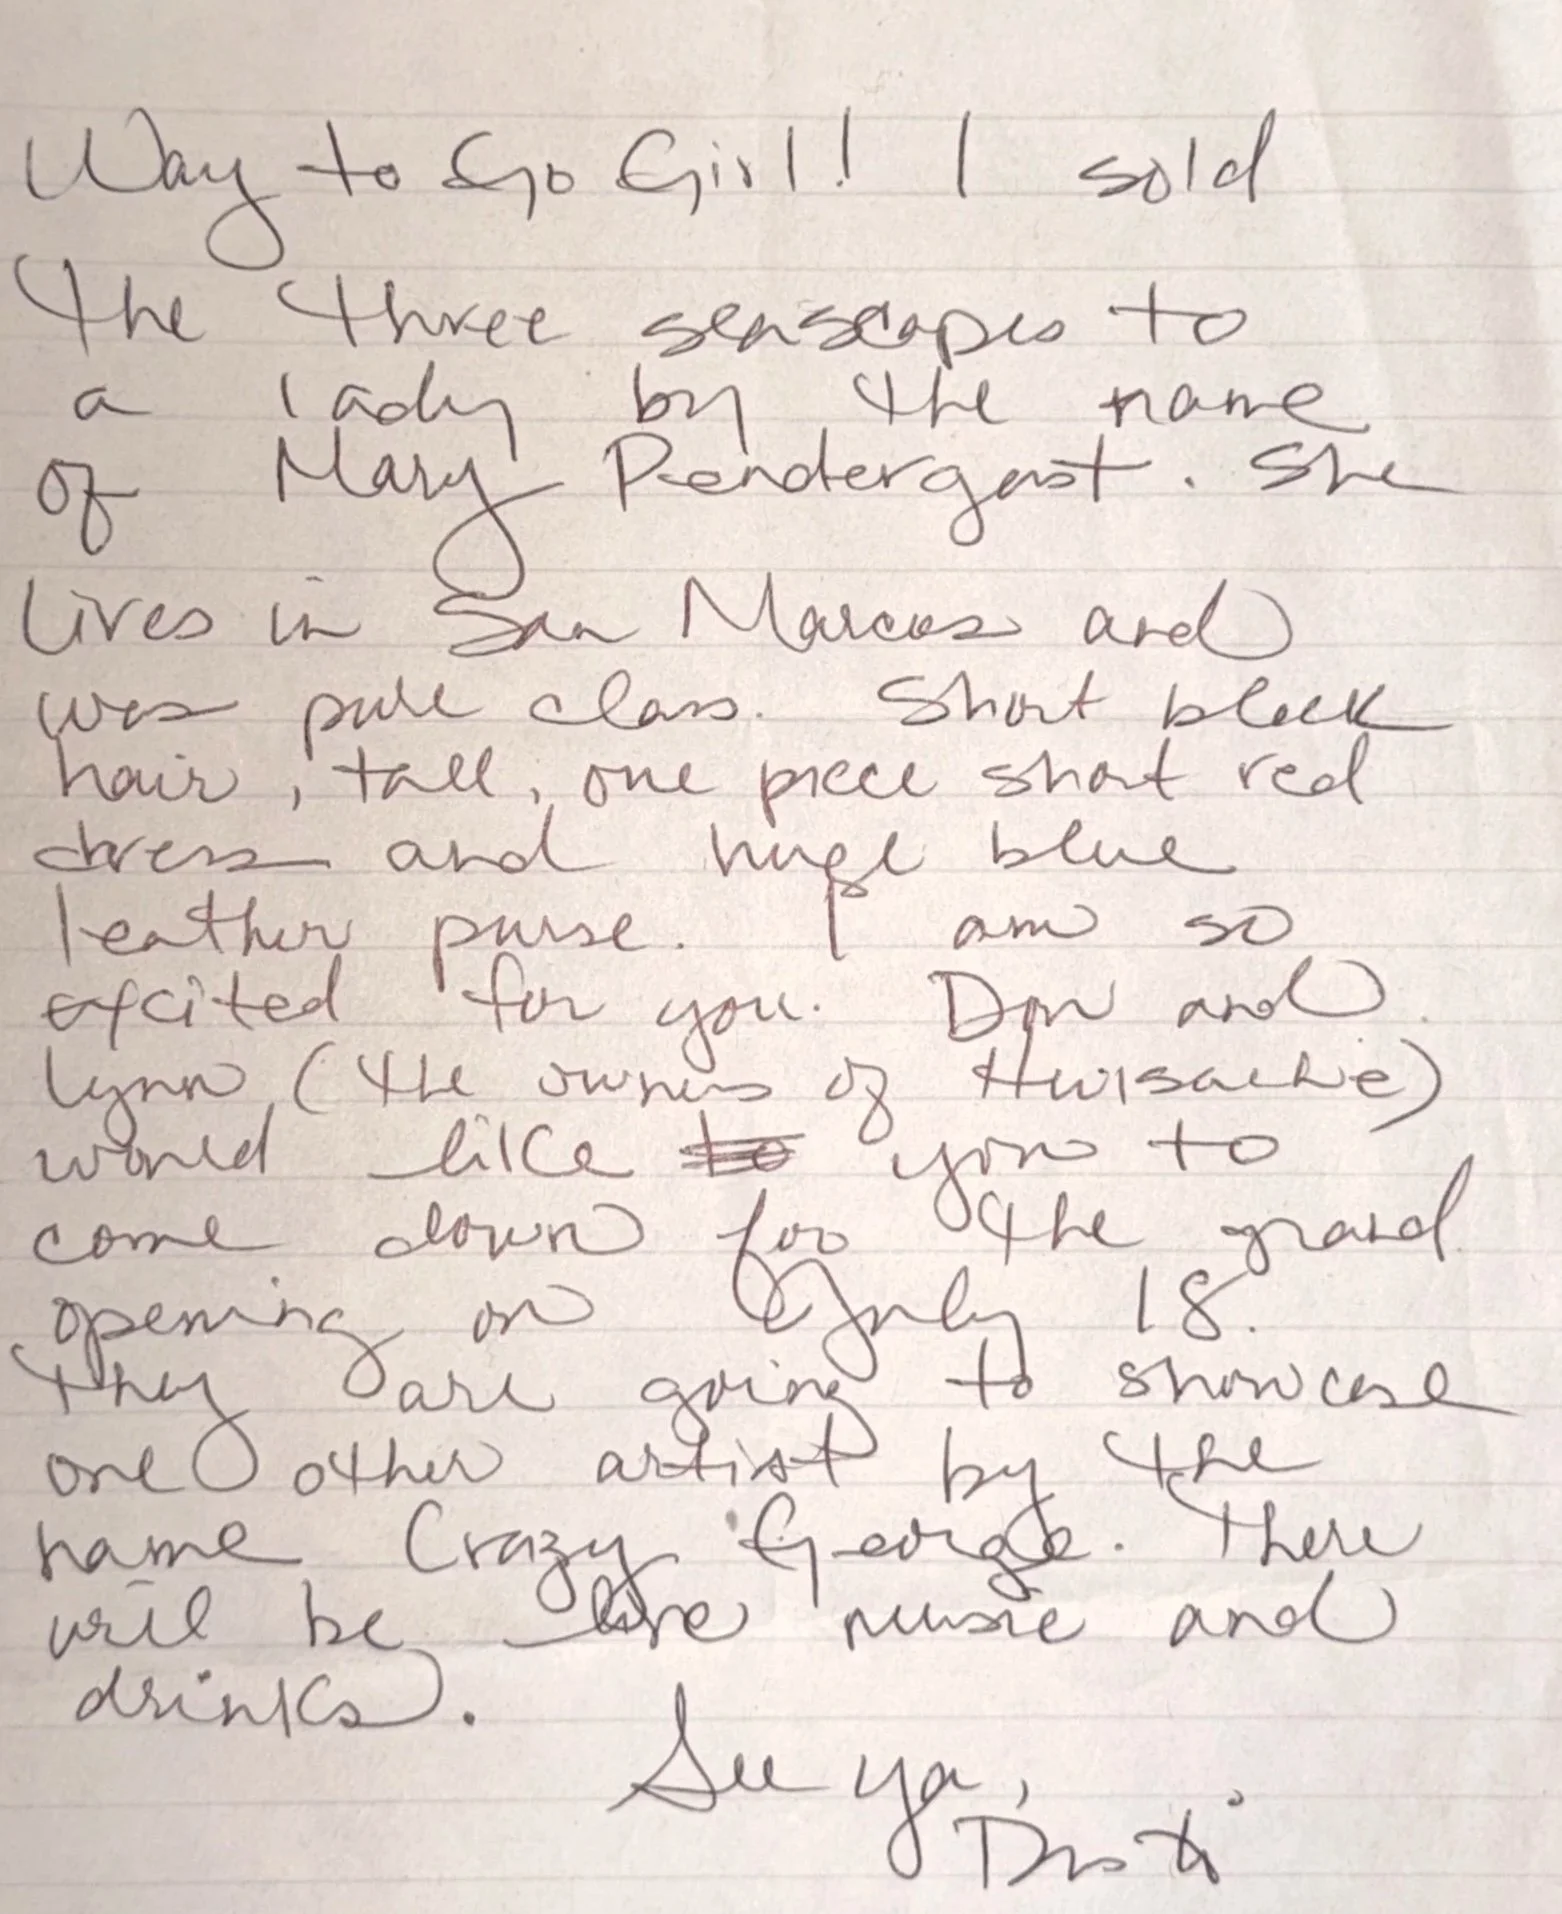 Way to Go Girl! I sold
the three seascapes to
a lady by the name
of Mary Pendergast. She
lives in San Marcos and
was pure class. Short black
hair, tall, one piece short red
dress and huge blue
leather purse. I am so
excited for you. Don and
Lynn (the owners of Huisache)
would like you to
come down for the grand
opening on July 18.
They are going to showcase
one other artist by the
name Crazy George. There
will be live music and
drinks.
See ya,